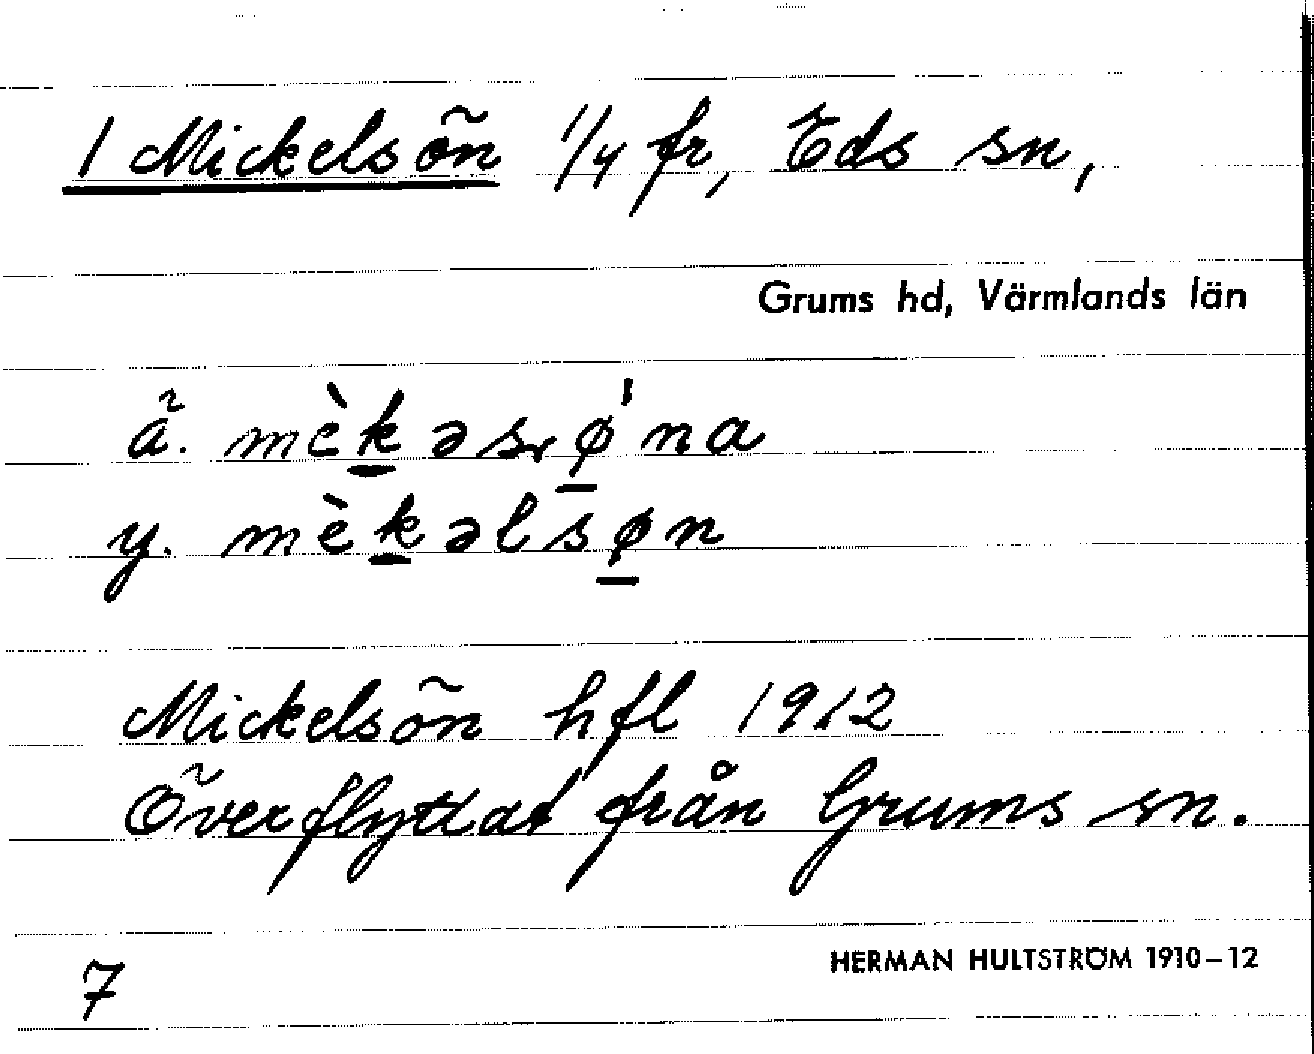 1 Mickelsön 1/4 fr, Eds sn,
Grums hd, Värmlands län
ä. mèkəsrø̱'na
y. mèkəlsø̱n
Mickelsön hfl 1912
Överflyttat från Grums sn.
7
HERMAN HULTSTRÖM 1910–12